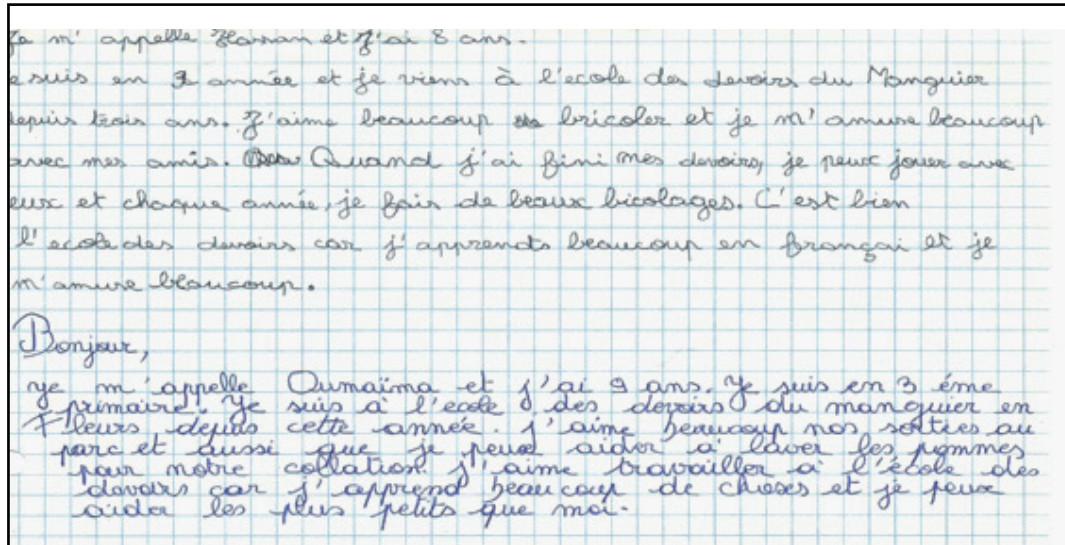 Je m'appelle Hassan et J'ai 8 ans.
e suis en 3 année et je viens à l'ecole des devoirs du Manguier
depuis trois ans. J'aime beaucoup bricoler et je m'amuse beaucoup
avec mes amis. Quand j'ai fini mes devoirs, je peux jouer avec
eux et chaque année, je fais de beaux bicolages. C'est bien
l'ecole des devoirs car j'apprends beaucoup en françai et je
m'amuse beaucoup.
Bonjour,
Je m'appelle Oumaïma et j'ai 9 ans. Je suis en 3 éme
primaire. Je suis à l'école des devoirs du manguier en
Fleurs depuis cette année. J'aime beaucoup nos sorties au
parc et aussi que je peux aider a laver les pommes
pour notre collation. J'aime travailler a l'école des
devoirs car j'apprend beaucoup de choses et je peux
aider les plus petits que moi.